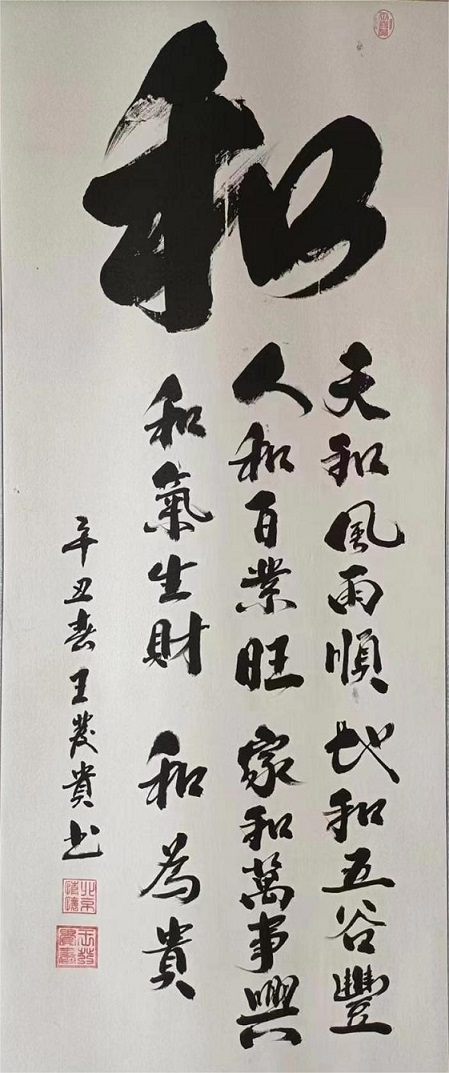 和
天和風雨順 地和五谷豐
人和百業旺 家和萬事興
和氣生財 和為貴
辛丑春王發貴书